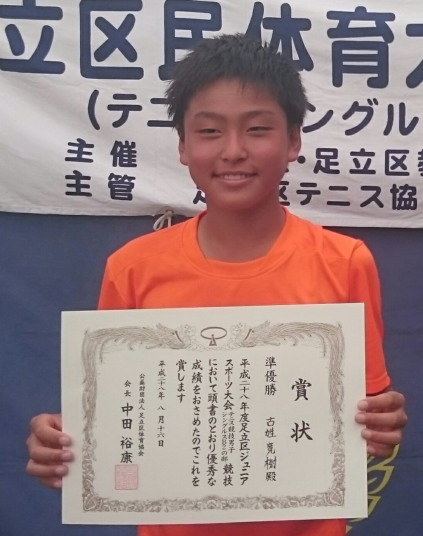 立区民体育大
(テニ ングル
主催 ・足立区教
主管 足 区テニス協
賞状
準優勝 古姓寛樹殿
平成二十八年度足立区ジュニア
スポーツ大会 テニス競技男子 シングルス の部 競技
において頭書のとおり優秀な
成績をおさめたのでこれを
賞します
平成二十八年 八月十六日
公益財団法人足立区体育協会
会長 中田裕康